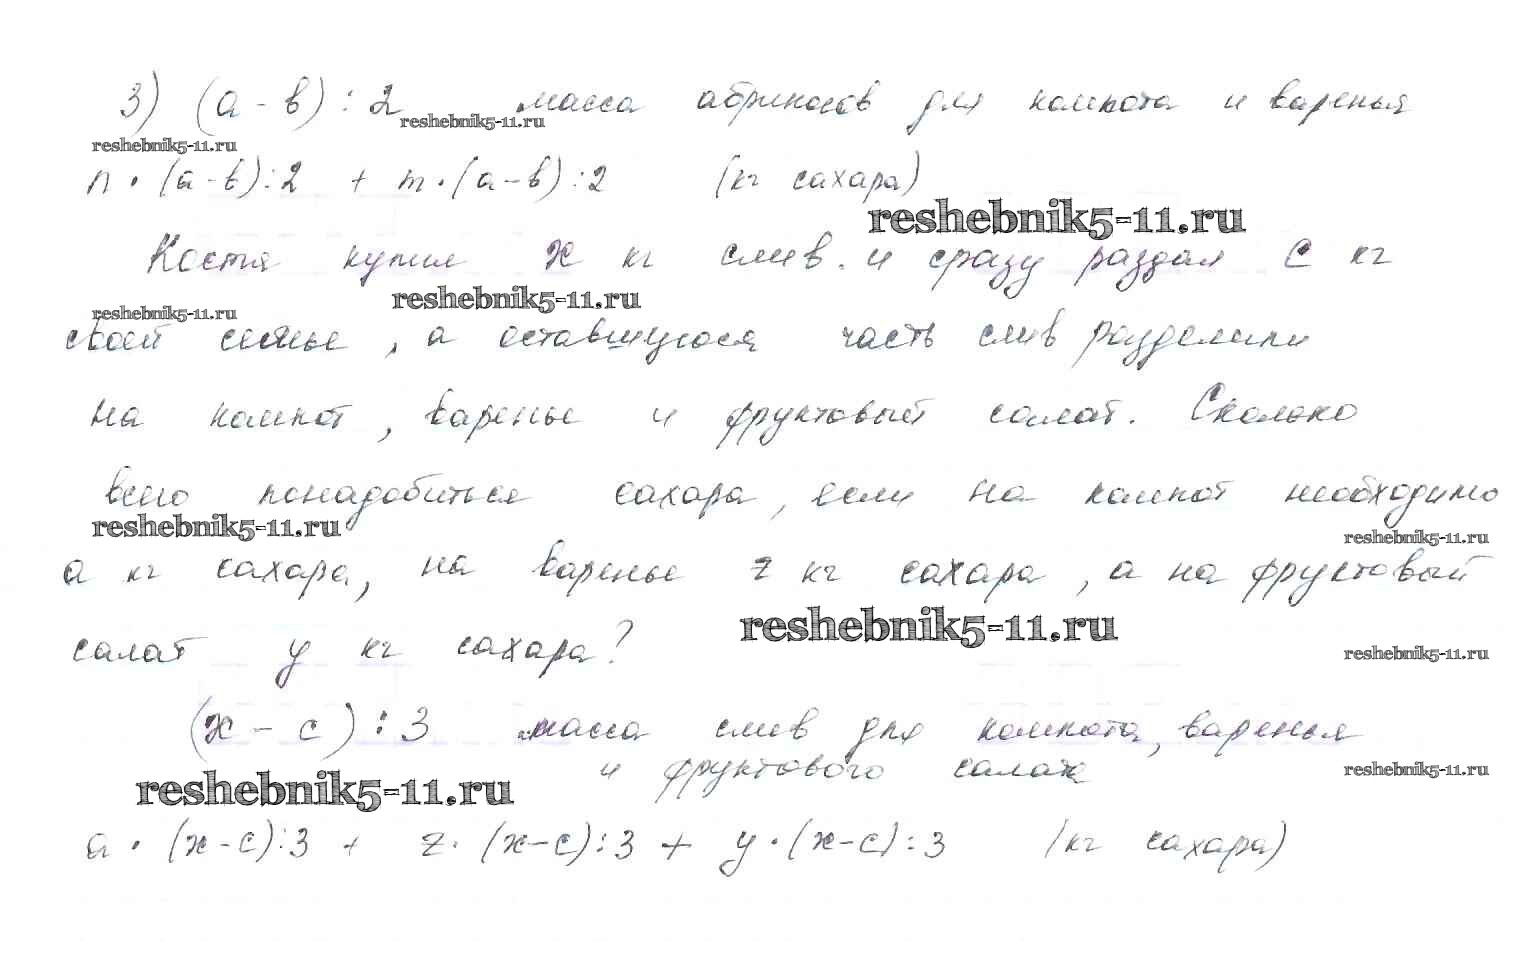 3) (a - b) : 2 масса абрикосов для компота и варенья
reshebnik5-11.ru
reshebnik5-11.ru
n · (a - b) : 2 + m · (a - b) : 2 (кг сахара)
reshebnik5-11.ru
Костя купил x кг слив. и сразу раздал c кг
reshebnik5-11.ru
reshebnik5-11.ru
своей семье, а оставшуюся часть слив разделили
на компот, варенье и фруктовый салат. Сколько
всего понадобиться сахара, если на компот необходимо
reshebnik5-11.ru
reshebnik5-11.ru
a кг сахара, на варенье z кг сахара, а на фруктовый
reshebnik5-11.ru
салат y кг сахара?
reshebnik5-11.ru
(x - c) : 3 масса слив для компота, варенья
и фруктового салата
reshebnik5-11.ru
reshebnik5-11.ru
a · (x - c) : 3 + z · (x - c) : 3 + y · (x - c) : 3 (кг сахара)